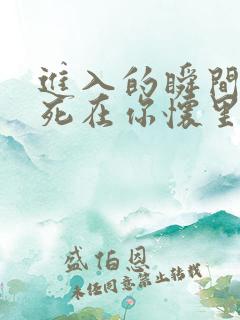 進入的瞬間
死在你懷里
盛伯恩
未任同意禁止转载